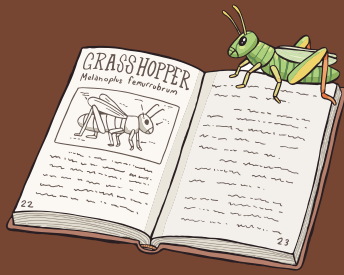 GRASSHOPPER
Melanoplus femurrobrum
22
23